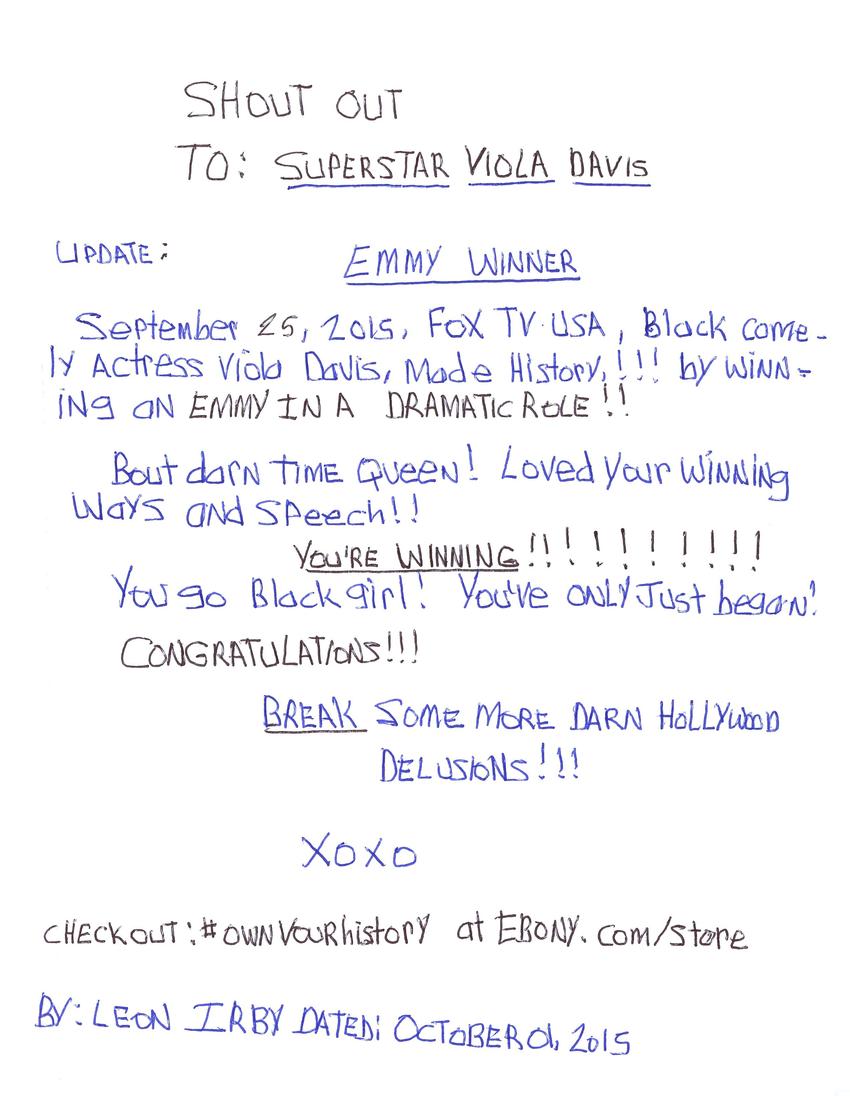 SHOUT OUT
TO: SUPERSTAR VIOLA DAVIS
UPDATE: EMMY WINNER
September 25, 2015, FOX TV USA, Black come-
ly Actress Viola Davis, Made History,!!! by WiNN-
iNg aN EMMY IN A DRAMATIC ROLE!!
Bout darN TIME QUEEN! Loved your WiNNiNg
Ways aNd Speech!!
YOU'RE WINNING!!!!!!!!!!
You go Black girl! You've ONLY Just began!
CONGRATULATIONS!!!
BREAK SOME MORE DARN HOLLYWOOD
DELUSIONS!!!
XOXO
CHECKOUT:#OWNYOURhistory at EBONY.com/Store
BY: LEON IRBY DATED: OCTOBER 01, 2015